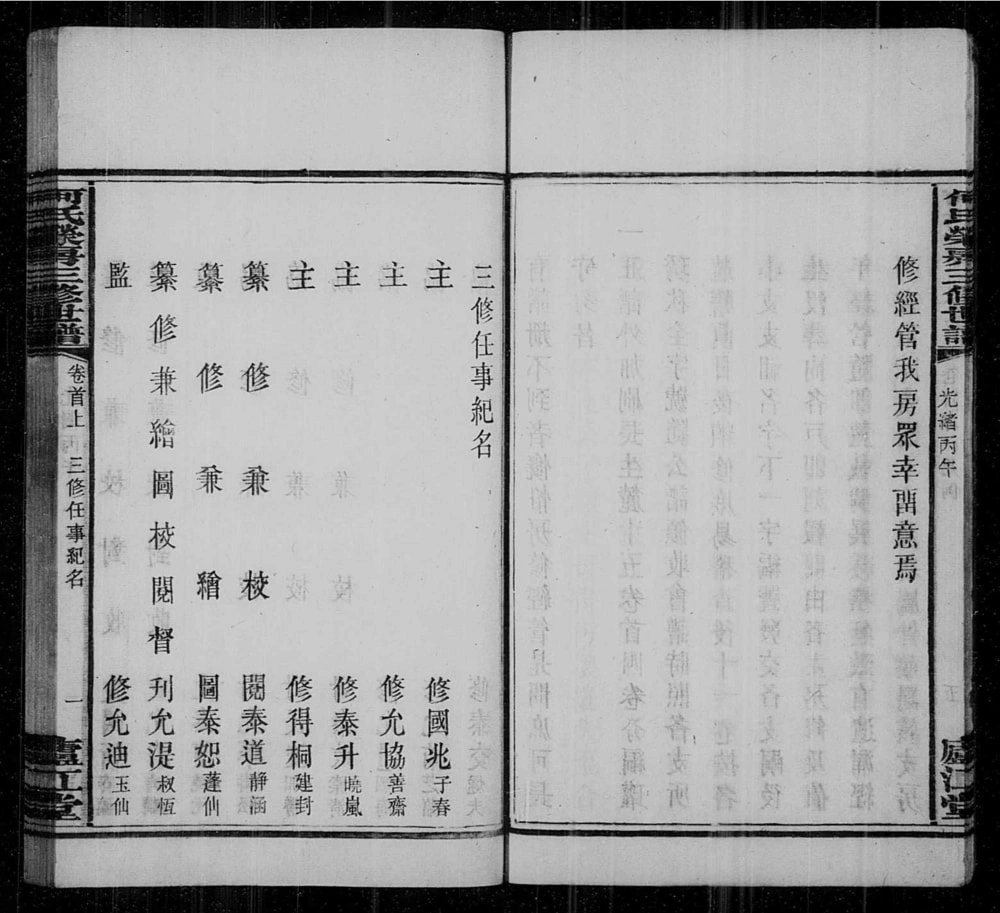 修經管我房眾幸畱意焉
光緒丙午
三修任事紀名
主修國兆子春
主修允協善齋
主修泰升曉嵐
主修得桐建封
纂修兼校閱泰道靜涵
纂修兼繪圖泰恕蓬仙
纂修兼繪圖校閱督刊允湜叔恆
監修允迪玉仙
何氏榮房三修世譜
卷首上
三修任事紀名
一
廬江堂